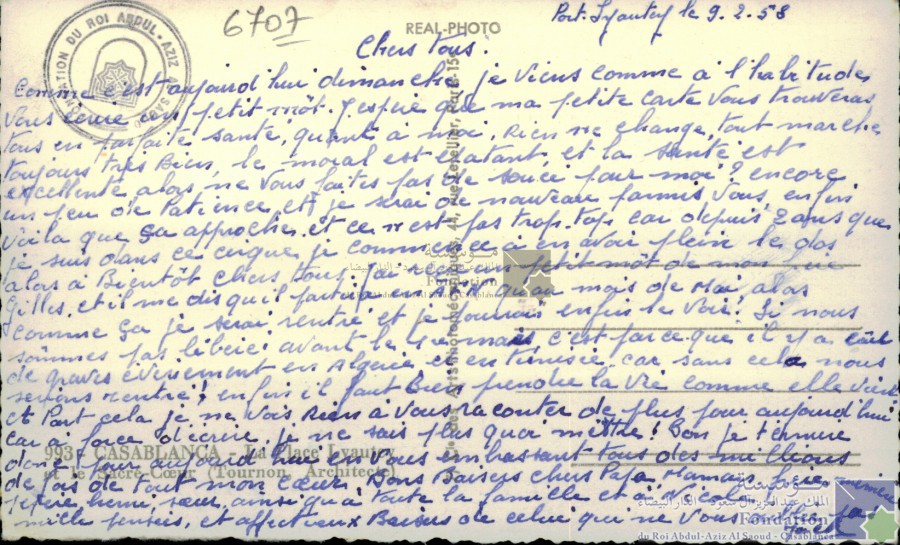 6707
REAL-PHOTO
Port-Lyautey le 9.2.58
Chers tous.
Comme c'est aujourd'hui dimanche je viens comme à l'habitude
vous écrire un petit mot. J'espère que ma petite carte vous trouveras
tous en parfaite santé, quant à moi, Rien ne change, tout marche
toujours très Bien, le moral est éxatant, et la santé est
excellente alors ne vous faites pas de souci pour moi? encore
un peu de Patience, et je serai de nouveau parmis vous, enfin
voila que ça approche, et ce n'est pas trop top car depuis 2 ans que
je suis dans ce cirque je commence à en avoir plein le dos
alors à Bientôt chers tous, j'ai reçu un petit môt de mon
Gilles, et il me dis qu'il partira en mois de Mai, alors
comme ça je serai rentré et je pourrais enfin le voir. Si nous
sommes pas libéré avant le mars c'est parce que il y a
de graves évènement en Algérie et en tunisie car sans cela nous
serions rentré! enfin il faut Bien prendre la vie comme elle vient
et Part cela je ne vois Rien à vous raconter de plus pour aujourd'hui
car à force d'écrire je ne sais plus quoi mettre! Bon je termine
donc pour aujourd'hui en vous embrassant tous des millions
de fois de tout mon cœur, Bons Baisers chers Papa, Maman,
frère, sœur, ainsi qu'à toute la famille et à
mille pensées, et affectueux Baisers de celui qui ne vous oublie pas
993 - CASABLANCA - La Place Lyautey
et le Sacré-Cœur (Tournon, Architecte)
FONDATION DU ROI ABDUL-AZIZ AL SAOUD
مؤسسة
الملك عبد العزيز آل سعود - الدار البيضاء
Fondation
du Roi Abdul-Aziz Al Saoud - Casablanca
مؤسسة
الملك عبد العزيز آل سعود - الدار البيضاء
Fondation
du Roi Abdul-Aziz Al Saoud - Casablanca